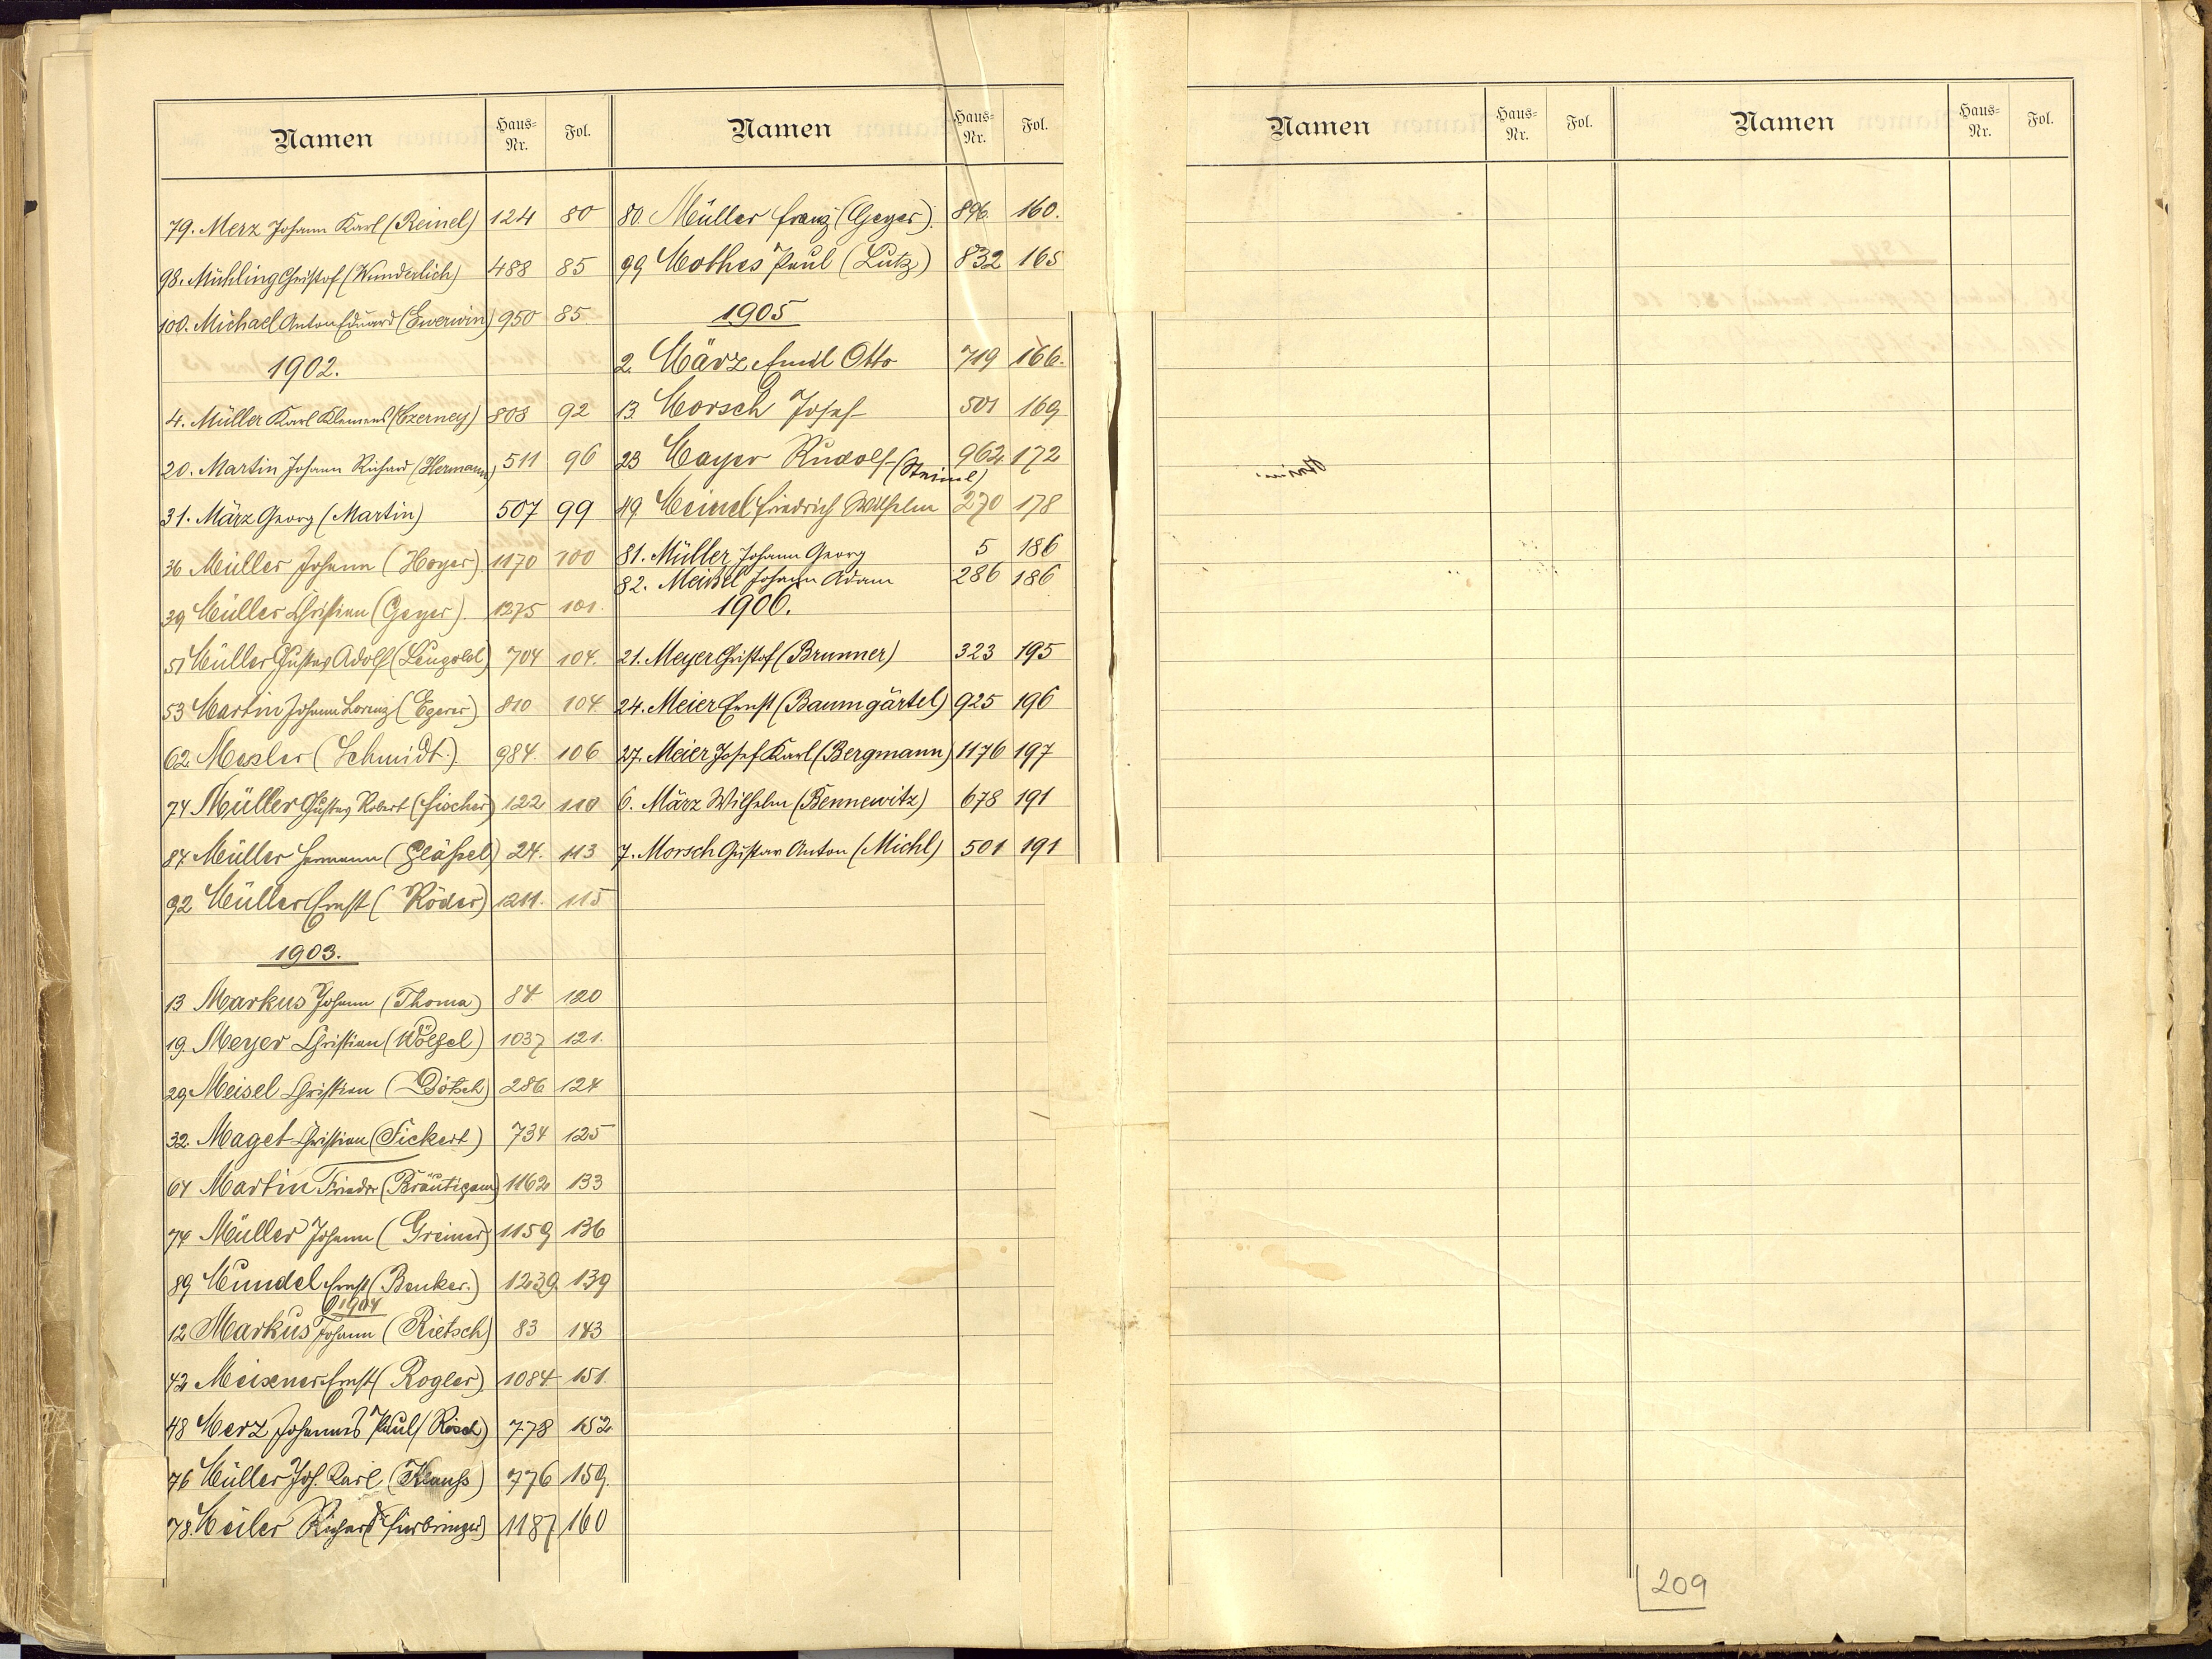 Namen Haus-Nr. Fol.
79. Merz Johann Karl (Reinel) 124 80
98. Mühling Christof (Wunderlich) 488 85
100. Michael Anton Eduard (Ewerwin) 950 85
1902.
4. Müller Karl Klemens (Czerney) 808 92
20. Martin Johann Richard (Hermann) 511 96
31. März Georg (Martin) 507 99
36 Müller Johann (Hoyer) 1170 100
39 Müller Christian (Geyer). 1275 101.
51 Müller Gustav Adolf (Leupold) 704 104.
53 Martin Johann Lorenz (Egerer) 810 104
62. Mexler (Schmidt.) 984. 106
74 Müller Gustav Robert (Fischer) 122 110
84. Müller Hermann (Gläßel) 24. 113
92 Müller Ernst (Röder) 1211. 115
1903.
13 Markus Johann (Thoma) 84 120
19. Meyer Christian (Wölfel) 1037 121.
29. Meisel Christian (Dötsch) 286 124
32. Maget Christian (Fickert) 734 125
64 Martin Friedr (Bräutigam) 1162 133
74 Müller Johann (Greiner) 1159 136
89 Mundel Ernst (Benker.) 1239. 139
1904
12 Markus Johann (Rietsch) 83 143
42 Meixner Ernst (Rogler) 1084 151.
48 Merz Johannes Paul (Rösch) 778 152
76 Müller Joh. Karl (Krauß) 776 159.
78. Meiler Richard (Fürbringer) 1187 160
Namen Haus-Nr. Fol.
80. Müller Franz (Geyer). 896. 160.
99 Mothes Paul (Lutz) 832 165
1905
2. März Emil Otto 719 166.
13. Morsch Josef 501 169
23 Mayer Rudolf (Steinel) 962 172
49. Meinel Friedrich Wilhelm 270 178
81. Müller Johann Georg 5 186
82. Meisel Johann Adam 286 186
1906.
21. Meyer Christof (Brunner) 323 195
24. Meier Ernst (Baumgärtel) 925 196
27. Meier Josef Karl (Bergmann) 1176 197
6. März Wilhelm (Bennewitz) 678 191
7. Morsch Gustav Anton (Michl) 501 191
Namen Haus-Nr. Fol.
Namen Haus-Nr. Fol.
209